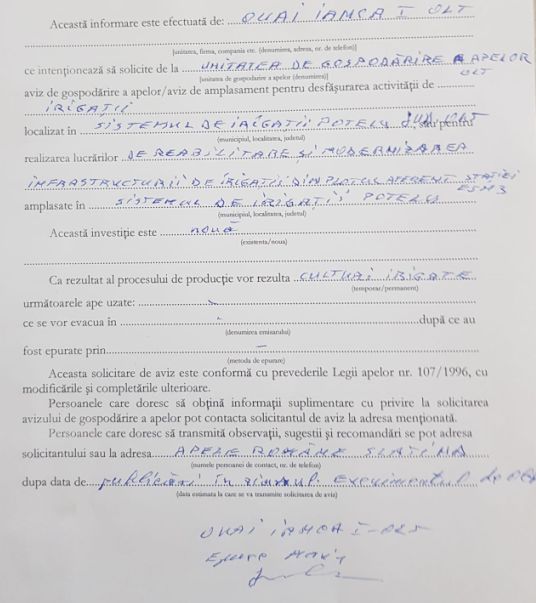 Această informare este efectuată de: OUAI IANCA I OLT
[unitatea, firma, compania etc. (denumirea, adresa, nr. de telefon)]
ce intenționează să solicite de la UNITATEA DE GOSPODĂRIRE A APELOR
OLT
[unitatea de gospodărire a apelor (denumirea)]
aviz de gospodărire a apelor/aviz de amplasament pentru desfășurarea activității de
IRIGAȚII
localizat în SISTEMUL DE IRIGAȚII POTELU JUD. OLT sau pentru
(municipiul, localitatea, județul)
realizarea lucrărilor DE REABILITARE ȘI MODERNIZAREA
INFRASTRUCTURII DE IRIGAȚII DIN PLOTUL AFERENT STAȚIEI
amplasate în SISTEMUL DE IRIGAȚII POTELU
(municipiul, localitatea, județul)
Această investiție este nouă
(existenta/noua)
Ca rezultat al procesului de producție vor rezulta CULTURI IRIGATE
(temporar/permanent)
următoarele ape uzate: -
ce se vor evacua în - după ce au
(denumirea emisarului)
fost epurate prin -
(metoda de epurare)
Aceasta solicitare de aviz este conformă cu prevederile Legii apelor nr. 107/1996, cu
modificările și completările ulterioare.
Persoanele care doresc să obțină informații suplimentare cu privire la solicitarea
avizului de gospodărire a apelor pot contacta solicitantul de aviz la adresa menționată.
Persoanele care doresc să transmită observații, sugestii și recomandări se pot adresa
solicitantului sau la adresa APELE ROMÂNE SLATINA
(numele persoanei de contact, nr. de telefon)
dupa data de publicări în ziarul Evenimentul de
(data estimata la care se va transmite solicitarea de aviz)
OUAI IANCA I - OLT